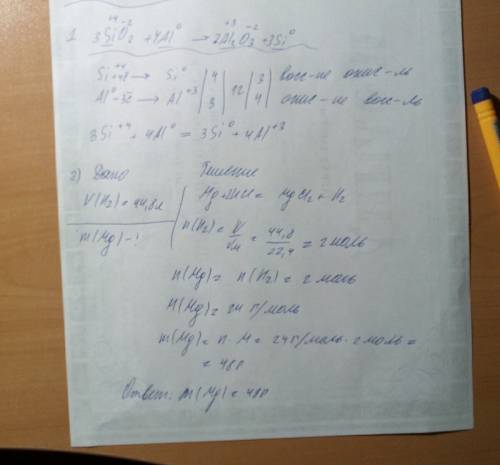 1. 3Si⁺⁴O₂⁻² + 4Al⁰ → 2Al₂⁺³O₃⁻² + 3Si⁰
Si⁺⁴ +4ē → Si⁰ | 4 | 12 | 3 | восс-ие окис-ль
Al⁰ -3ē → Al⁺³ | 3 | | 4 | окис-ие восс-ль
3Si⁺⁴ + 4Al⁰ = 3Si⁰ + 4Al⁺³
2) Дано Решение
V(H₂) = 44,8л Mg + 2HCl = MgCl₂ + H₂
m(Mg) - ? n(H₂) = V/Vм = 44,8/22,4 = 2 моль
n(Mg) = n(H₂) = 2 моль
M(Mg) = 24 г/моль
m(Mg) = n · M = 24 г/моль · 2 моль =
= 48г
Ответ: m(Mg) = 48г